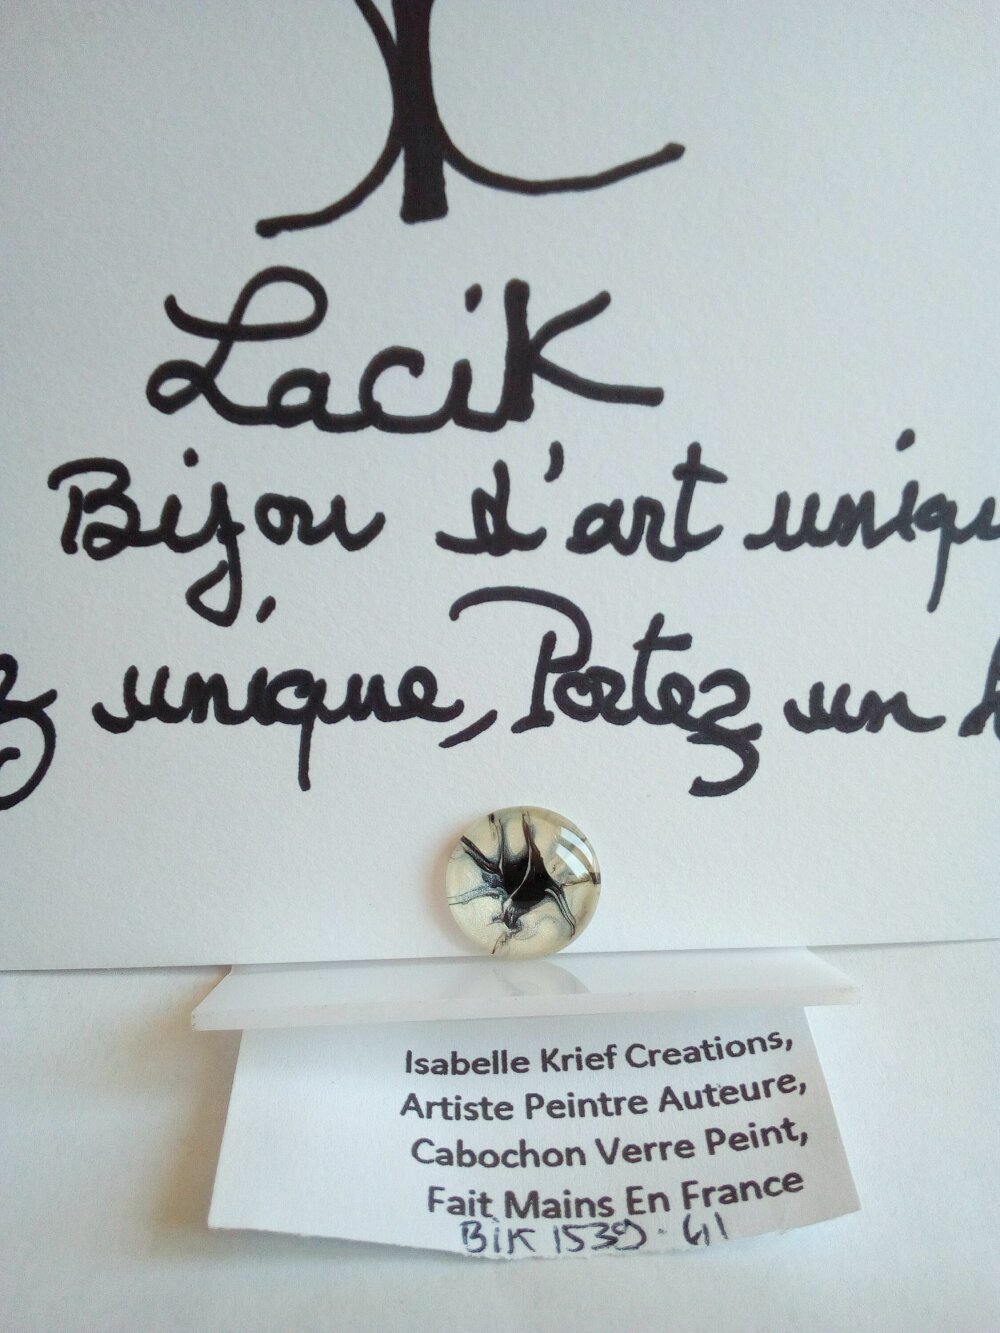 Lacik
Bijou d'art uniqu
z unique, Portez un
Isabelle Krief Creations,
Artiste Peintre Auteure,
Cabochon Verre Peint,
Fait Mains En France
BiK 1539.41